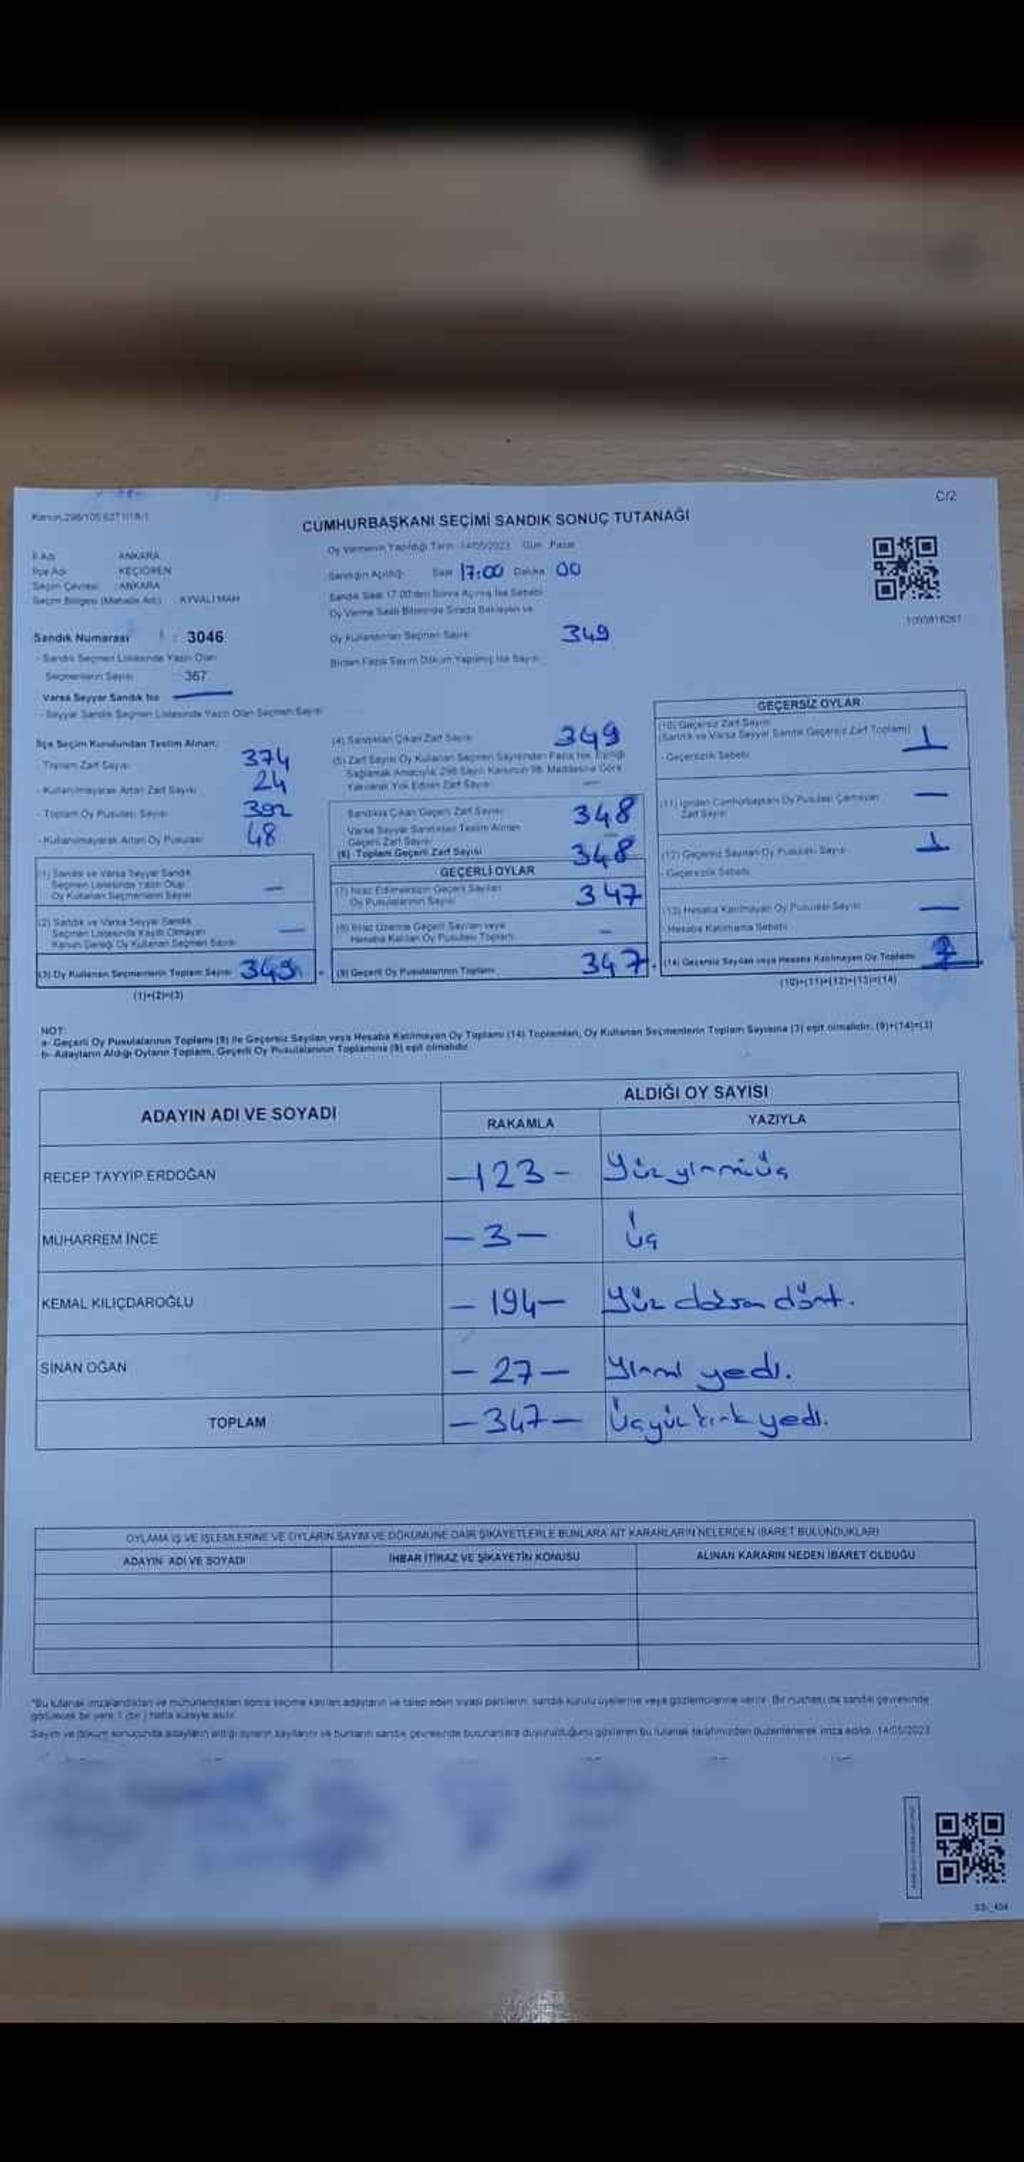 C/2
Kanun:298/105 6271/18/1
CUMHURBAŞKANI SEÇİMİ SANDIK SONUÇ TUTANAĞI
İl Adı ANKARA
İlçe Adı KEÇİÖREN
Seçim Çevresi : ANKARA
Seçim Bölgesi (Mahalle Adı) : AYVALI MAH
Sandık Numarası : 3046
- Sandık Seçmen Listesinde Yazılı Olan
Seçmenlerin Sayısı 367
Varsa Seyyar Sandık No
- Seyyar Sandık Seçmen Listesinde Yazılı Olan Seçmen Sayısı
Oy Vermenin Yapıldığı Tarih :14/05/2023 Gün : Pazar
Sandığın Açılığı Saat 17:00 Dakika 00
Sandık Saat 17.00'den Sonra Açılmış İse Sebebi
Oy Verme Saati Bitiminde Sırada Bekleyen ve
Oy Kullandırılan Seçmen Sayısı 349
Birden Fazla Sayım Döküm Yapılmış İse Sayısı
1000816261
İlçe Seçim Kurulundan Teslim Alınan;
- Toplam Zarf Sayısı 374
- Kullanılmayarak Artan Zarf Sayısı 24
- Toplam Oy Pusulası Sayısı 392
- Kullanılmayarak Artan Oy Pusulası 48
(1) Sandık ve Varsa Seyyar Sandık
Seçmen Listesinde Yazılı Olup
Oy Kullanan Seçmenlerin Sayısı —
(2) Sandık ve Varsa Seyyar Sandık
Seçmen Listesinde Kayıtlı Olmayan
Kanun Gereği Oy Kullanan Seçmen Sayısı —
(3) Oy Kullanan Seçmenlerin Toplam Sayısı 349
(1)+(2)=(3)
(4) Sandıktan Çıkan Zarf Sayısı 349
(5) Zarf Sayısı Oy Kullanan Seçmen Sayısından Fazla İse, Eşitliği
Sağlamak Amacıyla 298 Sayılı Kanunun 98. Maddesine Göre
Yakılarak Yok Edilen Zarf Sayısı —
Sandıkta Çıkan Geçerli Zarf Sayısı 348
Varsa Seyyar Sandıktan Teslim Alınan
Geçerli Zarf Sayısı —
(6) - Toplam Geçerli Zarf Sayısı 348
GEÇERLİ OYLAR
(7) İtiraz Edilmeksizin Geçerli Sayılan
Oy Pusulalarının Sayısı 347
(8) İtiraz Üzerine Geçerli Sayılan veya
Hesaba Katılan Oy Pusulası Toplamı —
(9) Geçerli Oy Pusulalarının Toplamı 347
GEÇERSİZ OYLAR
(10) Geçersiz Zarf Sayısı
(Sandık ve Varsa Seyyar Sandık Geçersiz Zarf Toplamı) 1
- Geçersizlik Sebebi
(11) İçinden Cumhurbaşkanı Oy Pusulası Çıkmayan
Zarf Sayısı —
(12) Geçersiz Sayılan Oy Pusulası Sayısı 1
- Geçersizlik Sebebi
(13) Hesaba Katılmayan Oy Pusulası Sayısı —
- Hesaba Katılmama Sebebi
(14) Geçersiz Sayılan veya Hesaba Katılmayan Oy Toplamı 2
(10)+(11)+(12)+(13)=(14)
NOT:
a- Geçerli Oy Pusulalarının Toplamı (9) ile Geçersiz Sayılan veya Hesaba Katılmayan Oy Toplamı (14) Toplamları, Oy Kullanan Seçmenlerin Toplam Sayısına (3) eşit olmalıdır. (9)+(14)=(3)
b- Adayların Aldığı Oyların Toplamı, Geçerli Oy Pusulalarının Toplamına (9) eşit olmalıdır.
ADAYIN ADI VE SOYADI
ALDIĞI OY SAYISI
RAKAMLA YAZIYLA
RECEP TAYYİP ERDOĞAN -123- Yüz yirmi üç
MUHARREM İNCE -3- Üç
KEMAL KILIÇDAROĞLU -194- Yüz doksan dört.
SİNAN OĞAN -27- Yirmi yedi.
TOPLAM -347- Üçyüz kırk yedi.
OYLAMA İŞ VE İŞLEMLERİNE VE OYLARIN SAYIM VE DÖKÜMÜNE DAİR ŞİKAYETLERLE BUNLARA AİT KARARLARIN NELERDEN İBARET BULUNDUKLARI
ADAYIN ADI VE SOYADI İHBAR İTİRAZ VE ŞİKAYETİN KONUSU ALINAN KARARIN NEDEN İBARET OLDUĞU
*Bu tutanak imzalandıktan ve mühürlendikten sonra seçime katılan adayların ve talep eden siyasi partilerin, sandık kurulu üyelerine veya gözlemcilerine verilir. Bir nüshası da sandık çevresinde
görülecek bir yere 1 (bir) hafta süreyle asılır.
Sayım ve döküm sonucunda adayların aldığı oyların sayılarını ve bunların sandık çevresinde bulunanlara duyurulduğunu gösteren bu tutanak tarafımızdan düzenlenerek imza edildi. 14/05/2023